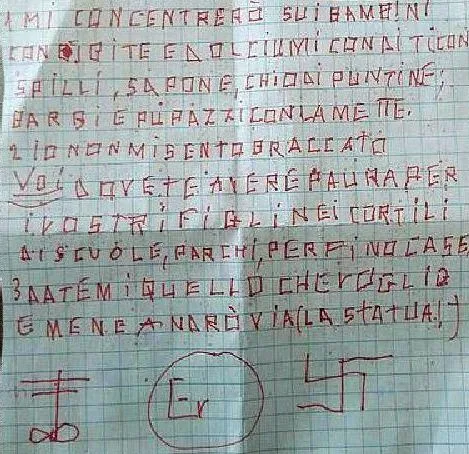 1 MI CONCENTRERÒ SUI BAMBINI
CON E DOLCIUMI CONDITI CON
SPILLI, SAPONE, CHIODI PUNTINE;
BARBIE PUPAZZI CON LAMETTE.
2 IO NON MI SENTO BRACCATO
VOI DOVETE AVERE PAURA PER
I VOSTRI FIGLI NEI CORTILI
DI SCUOLE, PARCHI, PERFINO CASE
3 DATEMI QUELLO CHE VOGLIO
E ME NE ANDRÒ VIA (LA STATUA!)
Er